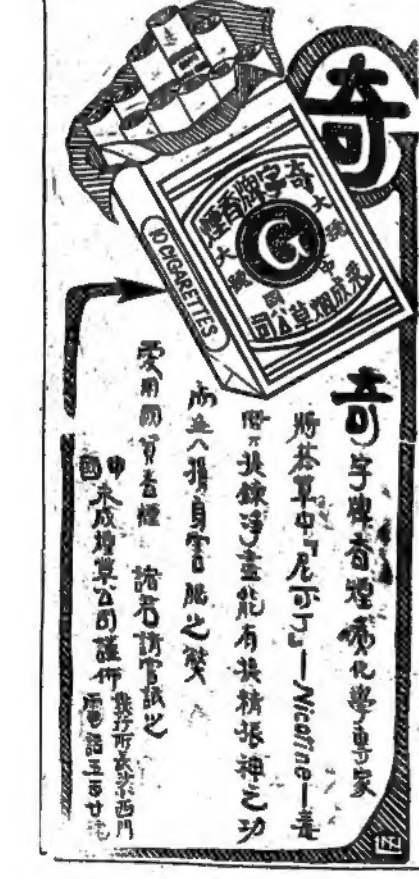 奇
奇字牌香煙
大
大
G
中國
永成烟草公司
10 CIGARETTES
奇字牌香煙為化學專家
將菸草中「尼可丁」—Nicotine—
提鍊淨盡能有提精振神之功
而無損身害腦之弊
愛用國貨香煙 諸君請嘗試之
中國永成煙草公司謹佈
電話五百廿